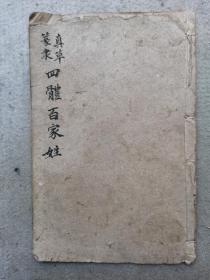 真草
篆隶
四體百家姓